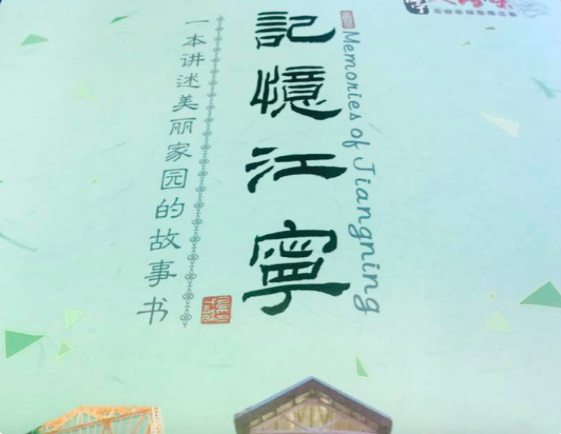 記憶江寧
Memories of Jiangning
一本讲述美丽家园的故事书